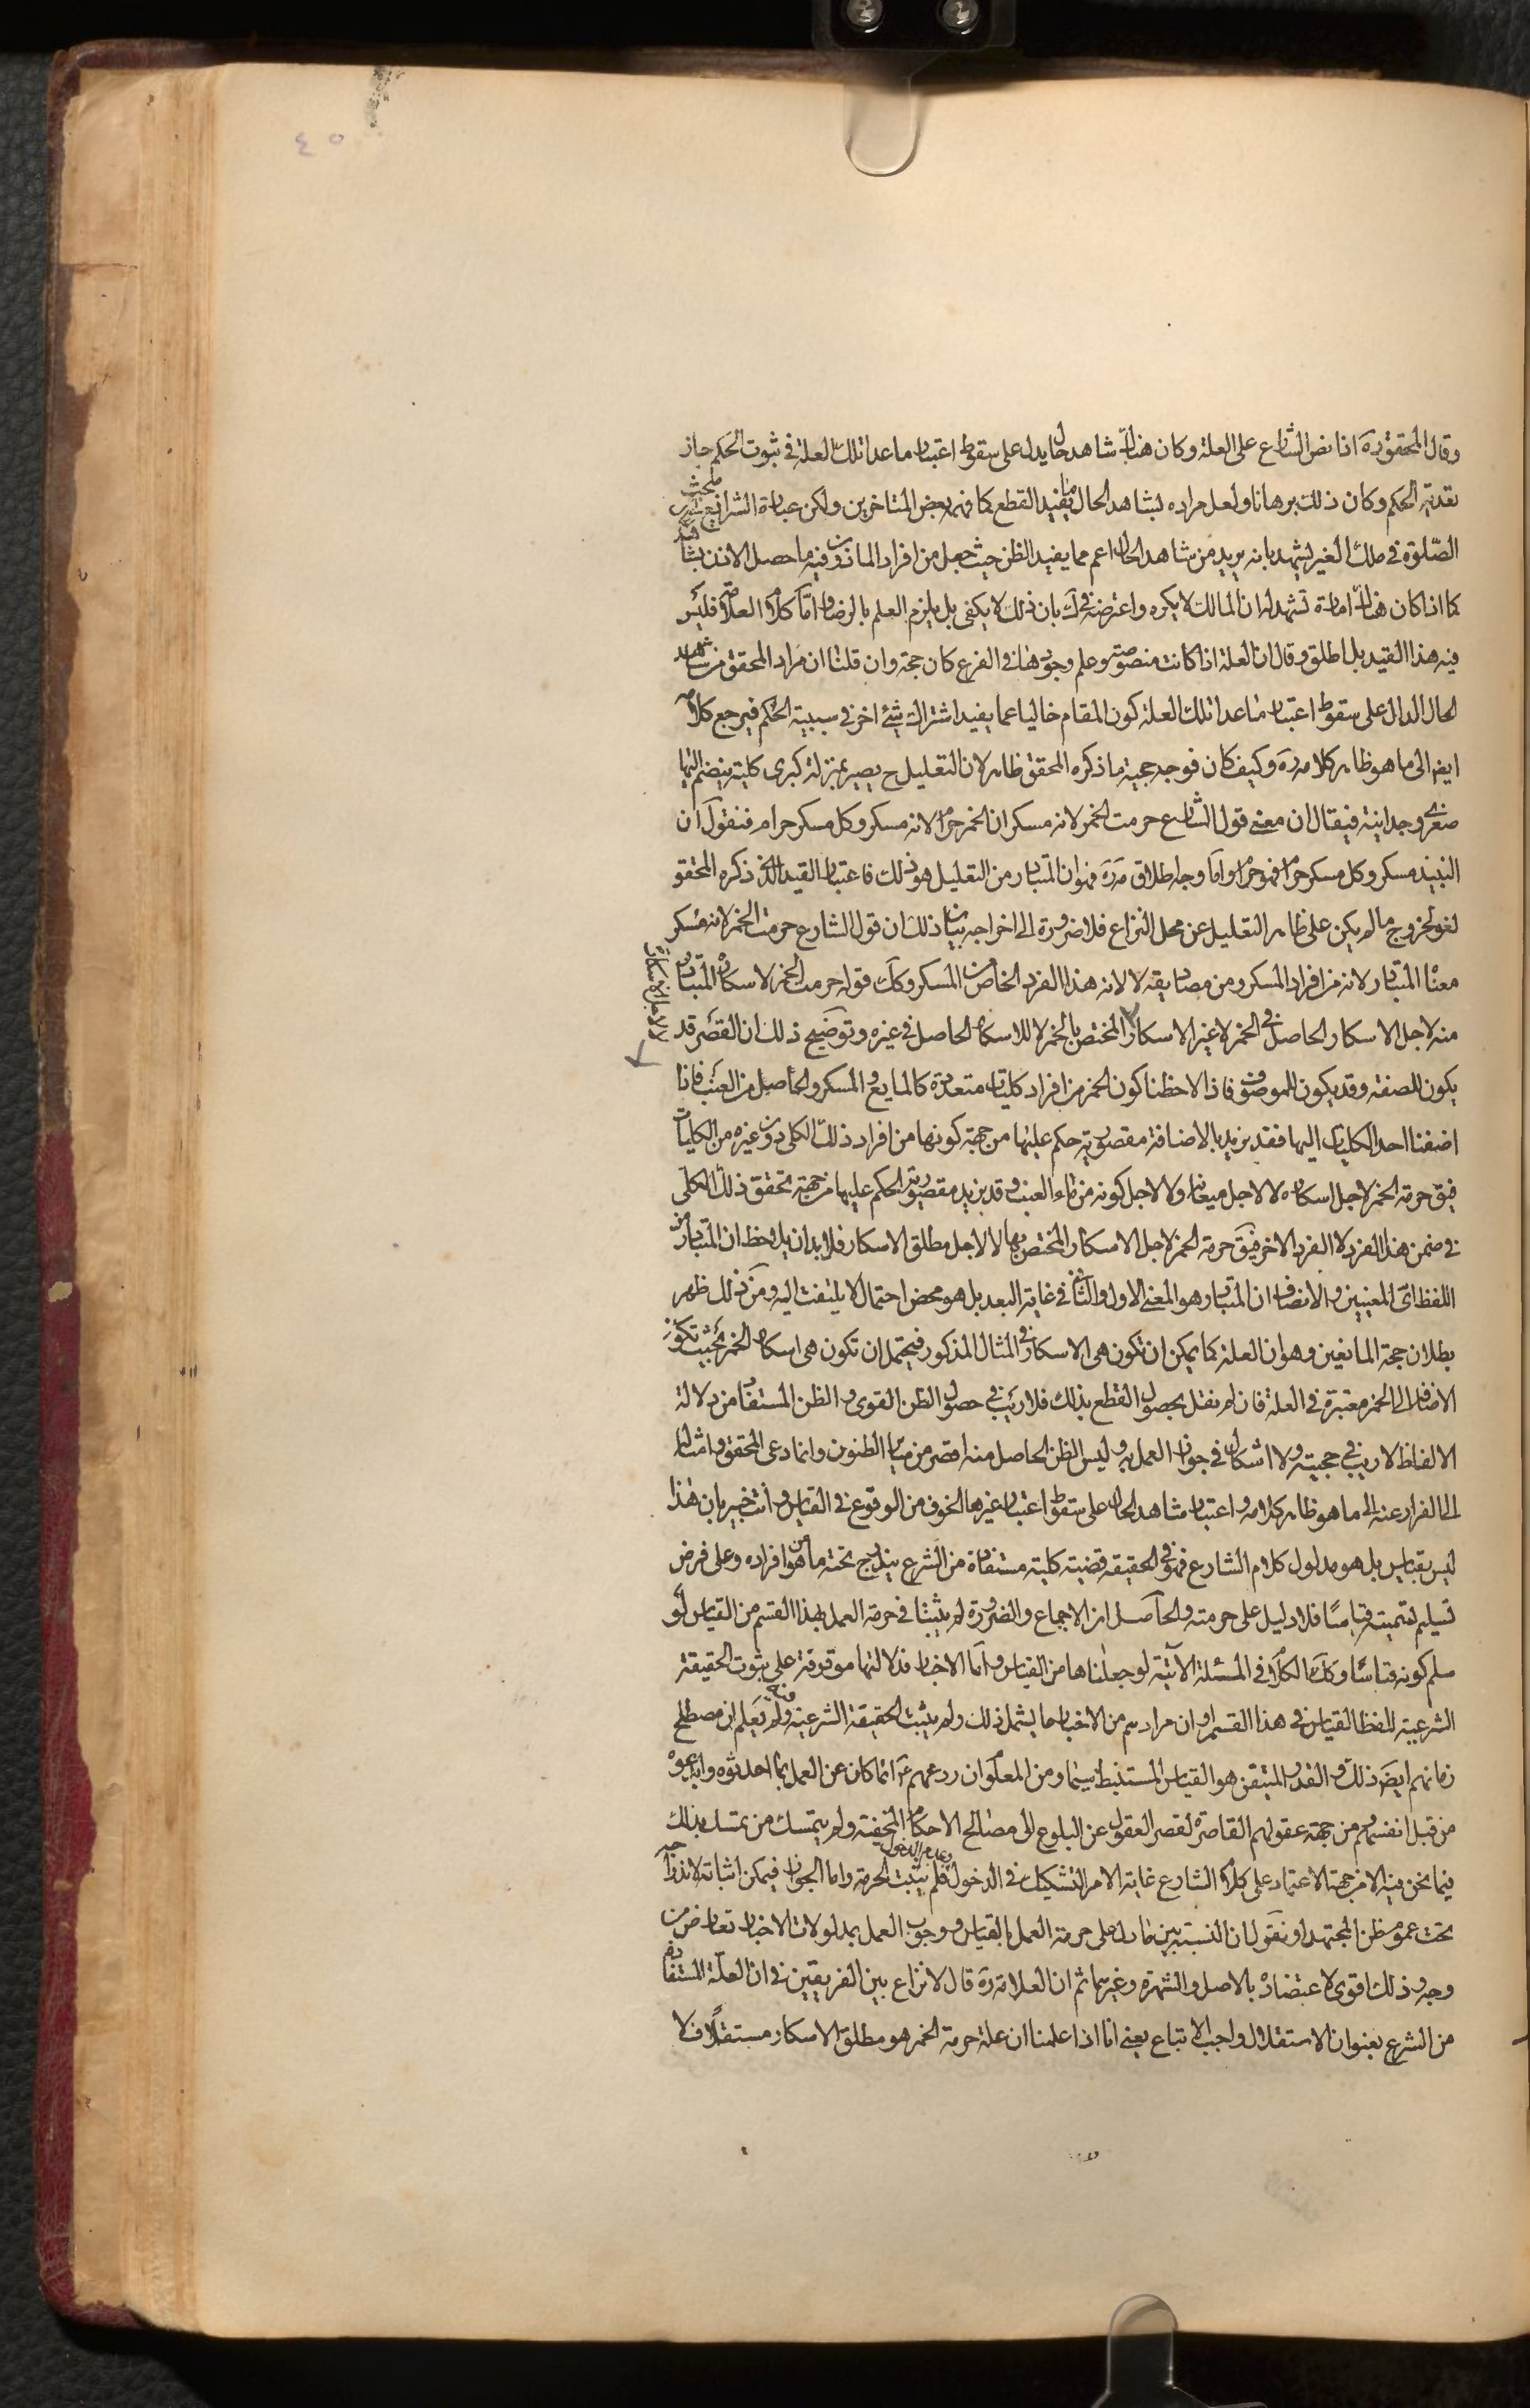 ٤٥
وقال المحقق ره اذا نص الشارع على العلة وكان هناك شاهد حال يدل على سقوط اعتبار ما عدا تلك العلة في ثبوت الحكم جاز
تعدية الحكم وكان ذلك برهانا ولعل مراده بشاهد الحال ما يفيد القطع كما فهمه بعض المتاخرين ولكن عبارة الشرايع في بحث
الصلوة في ملك الغير يشهد بانه يريد من شاهد الحال اعم مما يفيد الظن حيث جعل من افراد الماذون فيه ما حصل الاذن بشاهد
كما اذا كان هناك امارة تشهد ان المالك لا يكره واعترضه في ك بان ذلك لا يكفى بل يلزم العلم بالرضا واما كلام العلامة فليس
فيه هذا القيد بل اطلق وقال ان العلة اذا كانت منصوصة وعلم وجودها في الفرع كان حجة وان قلنا ان مراد المحقق من شاهد
الحال الدال على سقوط اعتبار ما عدا تلك العلة كون المقام خاليا عما يفيد اشتراك شئ اخر في سببية الحكم فيرجع كلامه
ايضا الى ما هو ظاهر كلامه ره وكيف كان فوجه حجية ما ذكره المحقق ظاهر لان التعليل ح يصير بمنزلة كبرى كلية ينضم اليها
صغرى وجدانية فيقال ان معنى قول الشارع حرمت الخمر لانه مسكر ان الخمر حرام لانه مسكر وكل مسكر حرام فنقول ان
النبيذ مسكر وكل مسكر حرام فهو حرام واما وجه اطلاق مة ره فهو ان المتبادر من التعليل هو ذلك فاعتبار القيد الذي ذكره المحقق
لغو لخروج ما لم يكن على ظاهر التعليل عن محل النزاع فلا ضرورة الى اخراجه بيان ذلك ان قول الشارع حرمت الخمر لانه مسكر
معناه المتبادر لانه من افراد المسكر ومن مصاديقه لا لانه هذا الفرد الخاص من المسكر وكك قوله حرمت الخمر لاسكاره المتبادر
منه لاجل الاسكار الحاصل في الخمر لا غير الاسكار المختص بالخمر لا للاسكار الحاصل في غيره وتوضيح ذلك ان القصر قد
يكون للصفة وقد يكون للموصوف فاذا لاحظنا كون الخمر من افراد كليات متعددة كالمايع والمسكر والحاصل من العنب فاذا
اضفنا احد الكليات اليها فقد نريد بالاضافة مقصورية حكم عليها من جهة كونها من افراد ذلك الكلى دون غيره من الكليات
فيق حرمة الخمر لاجل اسكاره لا لاجل ميعانه ولا لاجل كونه من ماء العنب وقد نريد مقصورية الحكم عليها من جهة تحقق ذلك الكلى
في ضمن هذا الفرد لا الفرد الاخر فيق حرمة الخمر لاجل الاسكار المختص بها لا لاجل مطلق الاسكار فلا بد ان يلاحظ ان المتبادر من
اللفظ اى المعنيين والانصاف ان المتبادر هو المعنى الاول والثانى في غاية البعد بل هو محض احتمال لا يلتفت اليه ومن ذلك ظهر
بطلان حجة المانعين وهو ان العلة كما يمكن ان تكون هى الاسكار في المثال المذكور فيحتمل ان تكون هى اسكار الخمر بحيث تكون
الاضافة الى الخمر معتبرة في العلة فان لم نقل بحصول القطع بذلك فلا ريب في حصول الظن القوى والظن المستفاد من دلالة
الالفاظ لا ريب في حجيته ولا اشكال في جواز العمل به وليس الظن الحاصل منه اقصر من ساير الظنون وانما دعى المحقق وامثاله
الى الفرار عنه الى ما هو ظاهر كلامه واعتبار شاهد الحال على سقوط اعتبار غيرها الخوف من الوقوع في القياس وانت خبير بان هذا
ليس بقياس بل هو مدلول كلام الشارع فهو في الحقيقة قضية كلية مستفادة من الشرع يندرج تحته ما هو من افراده وعلى فرض
تسليم تسميته قياسا فلا دليل على حرمته والحاصل ان الاجماع والضرورة لم يثبتا في حرمة العمل بهذا القسم من القياس لو
سلم كونه قياسا وكك الكلام في المسئلة الاتية لو جعلناها من القياس واما الاخبار فدلالتها موقوفة على ثبوت الحقيقة
الشرعية للفظ القياس في هذا القسم او ان مرادهم من الاخبار ما يشمل ذلك ولم يثبت الحقيقة الشرعية فيه ولم يعلم ان مصطلح
زمانهم ايضا ذلك والقدر المتيقن هو القياس المستنبط سيما ومن المعلوم ان ردعهم ع انما كان عن العمل بما احدثوه وابدعوه
من قبل انفسهم من جهة عقولهم القاصرة لقصر العقول عن البلوغ الى مصالح الاحكام الخفية ولم يتمسك من تمسك بذلك
فيما نحن فيه الا من جهة الاعتماد على كلام الشارع غاية الامر التشكيك في الدخول وعدم الدخول فلم يثبت الحرمة واما الجواز فيمكن اثباته لاندراجه
تحت عموم ظن المجتهد او نقول ان النسبة بين ما دل على حرمة العمل بالقياس ووجوب العمل بمدلولات الاخبار تعارض من
وجه وذلك اقوى لاعتضاده بالاصل والشهرة وغيرهما ثم ان العلامة ره قال لا نزاع بين الفريقين في ان العلة المستفادة
من الشرع بعنوان الاستقلال واجب الاتباع يعنى انا اذا علمنا ان علة حرمة الخمر هو مطلق الاسكار مستقلا فلا